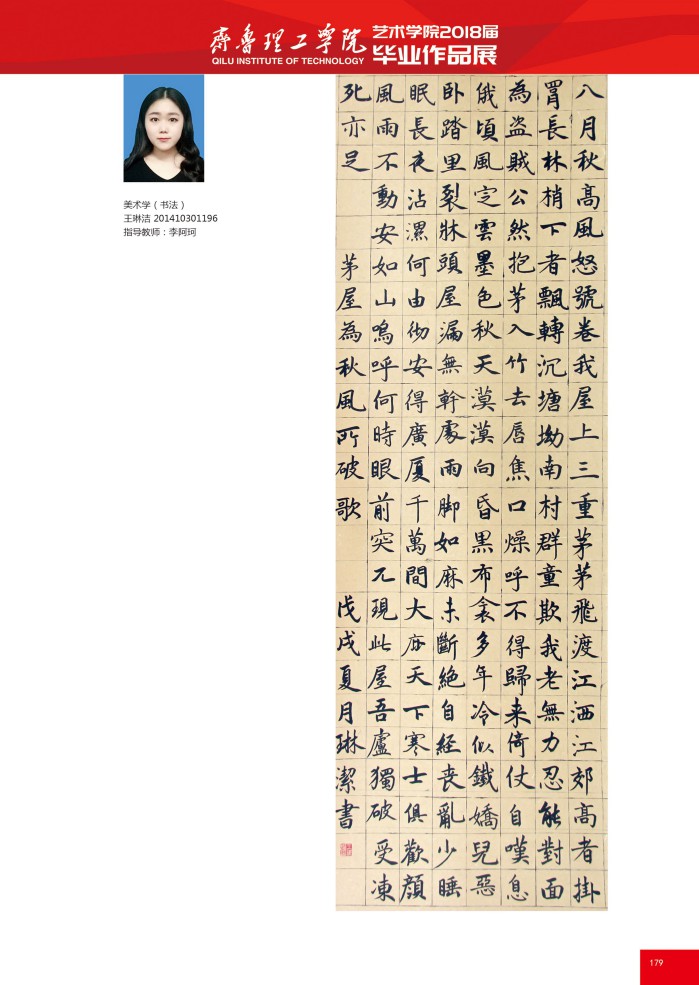 齊魯理工學院
QILU INSTITUTE OF TECHNOLOGY
艺术学院2018届
毕业作品展
美术学（书法）
王琳洁 201410301196
指导教师：李阿珂
八月秋高風怒號卷我屋上三重茅茅飛渡江洒江郊高者掛
罥長林梢下者飄轉沉塘坳南村群童欺我老無力忍能對面
為盗賊公然抱茅入竹去唇焦口燥呼不得歸来倚仗自嘆息
俄頃風定雲墨色秋天漠漠向昏黑布衾多年冷似鐵嬌兒惡
卧踏里裂牀頭屋漏無幹處雨脚如麻未斷絶自經丧亂少睡
眠長夜沾濕何由彻安得廣厦千萬間大庇天下寒士俱歡顔
風雨不動安如山嗚呼何時眼前突兀現此屋吾廬獨破受凍
死亦足 茅屋為秋風所破歌 戊戌夏月琳潔書
179